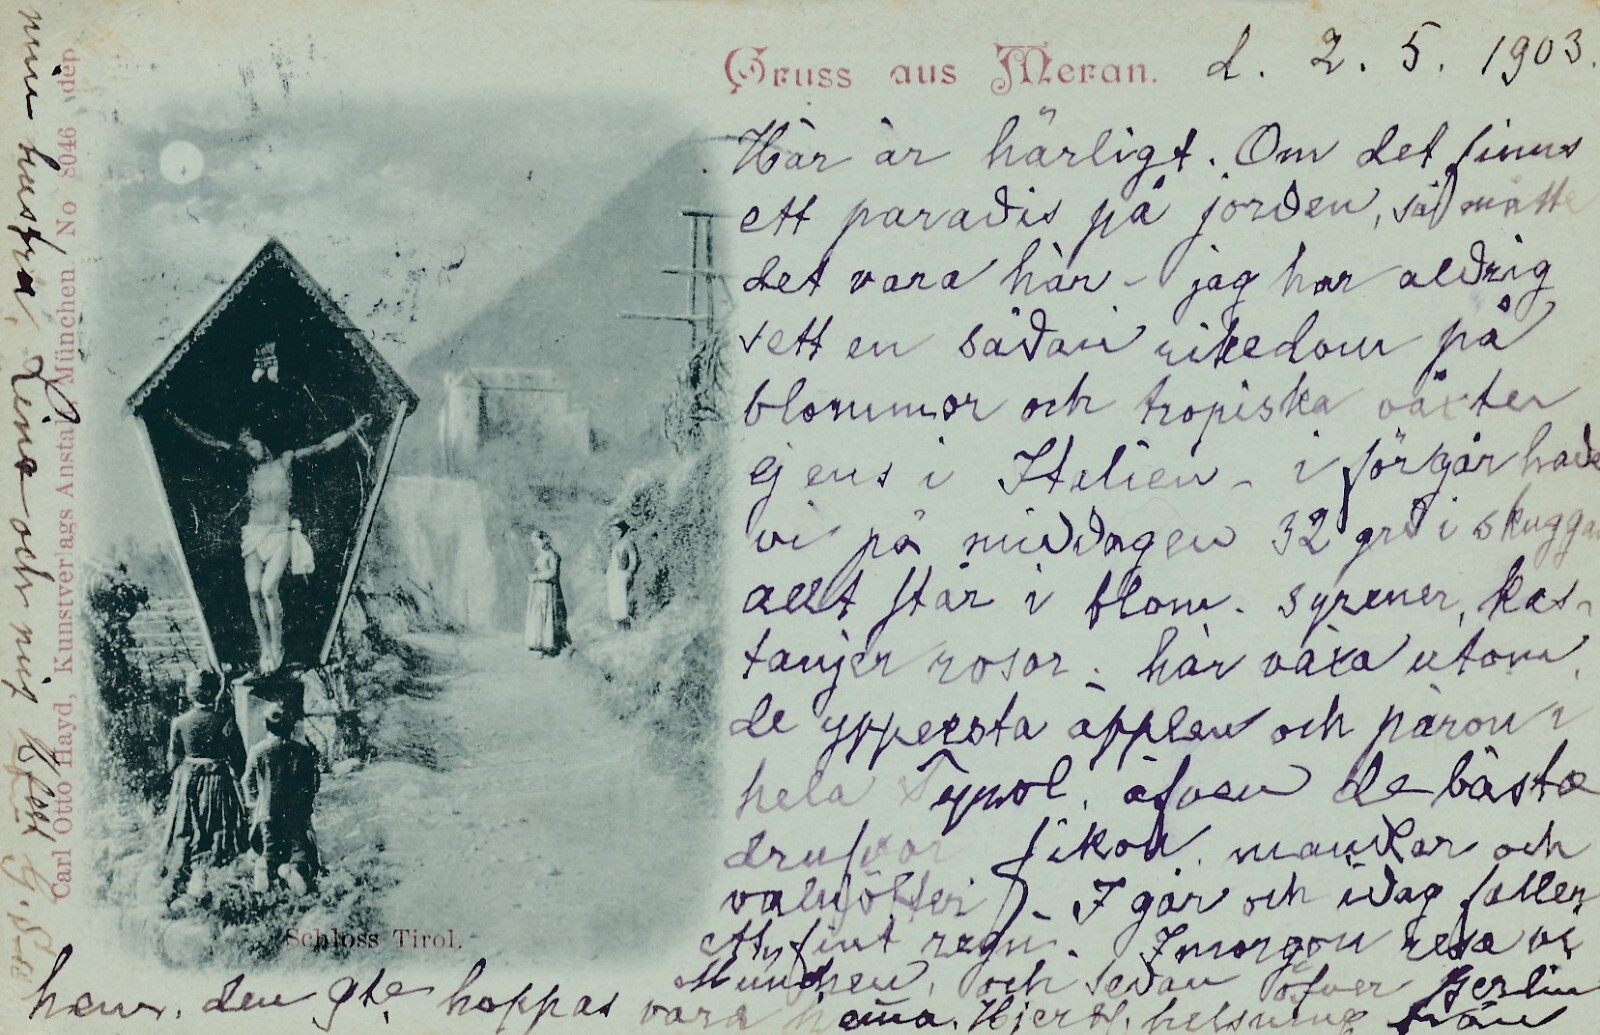 Gruss aus Meran. d. 2. 5. 1903.
Här är härligt. Om det finns
ett paradis på jorden, så måtte
det vara här - jag har aldrig
sett en sådan rikedom på
blommor och tropiska växter
ej ens i Italien - i förgår hade
vi på middagen 32 grd i skuggan
allt står i blom. syrener, kas-
tanjer rosor. här växa utom
de yppersta äpplen och päron i
hela Tyrol, äfven de bästa
drufvor fikon, mandlar och
valnötter). I går och idag faller
ett fint regn. Imorgon resa vi
München, och sedan öfver Berlin
hem. den 9te hoppas vara hemma. Hjertl. helsning från
min hustru, Lina och mig
Schloss Tirol.
Carl Otto Hayd, Kunstverlags Anstalt München No 8046 dep